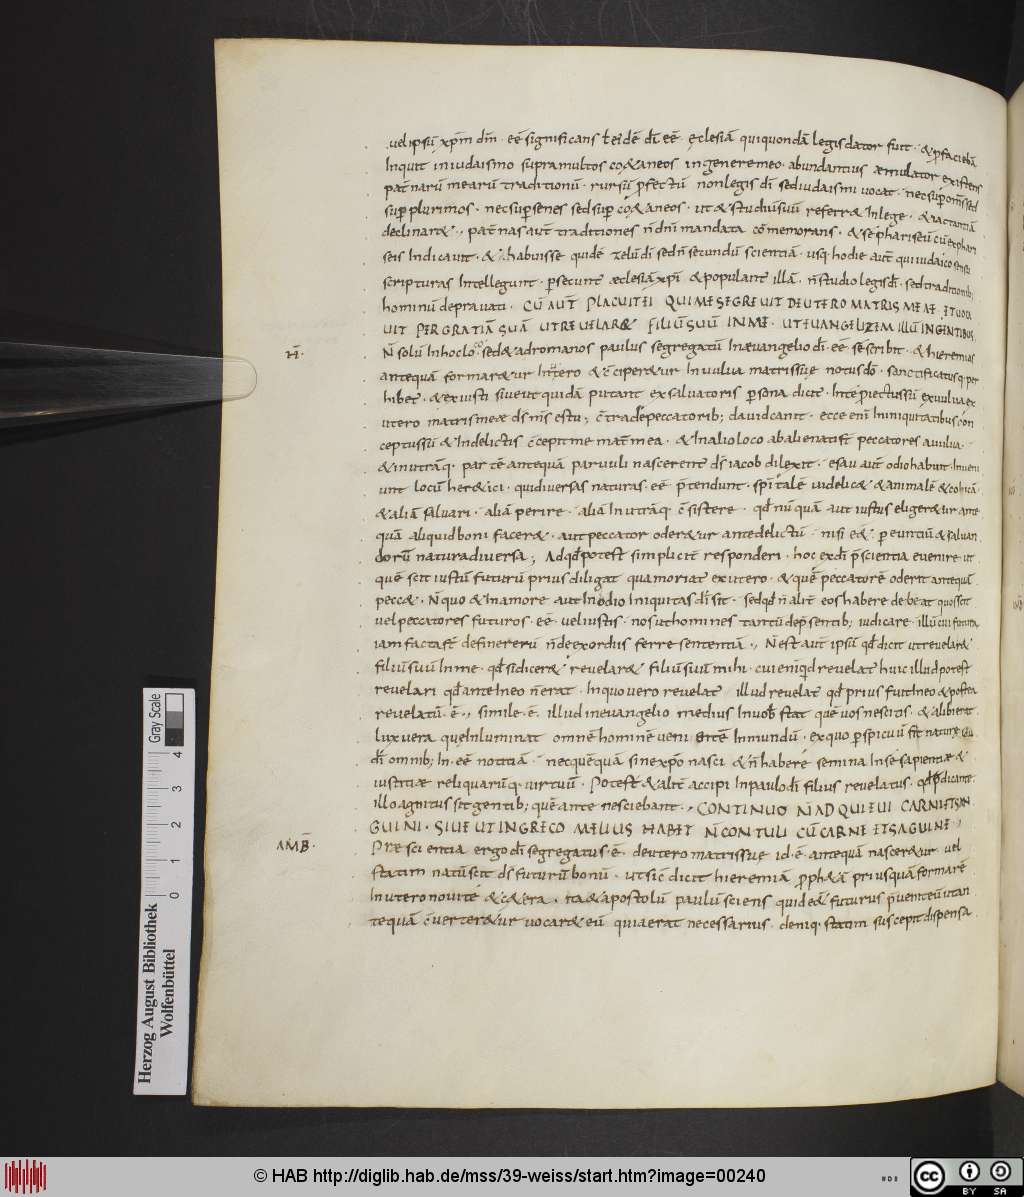 uel ipsū xp̄m dn̄m · eē significans t̄ eidē dī eē · ęclesiā qui quondā legis dator fuit · & p̱ faciebā
Inquit in iudaismo supra multos co&aneos in genere meo · abundantius æmulator existens
pat̄narū mearū traditionū · rursū p̱fectū non legis dī sed iudaismi uocat · nec sup̱ om̄s sed
sup̱ plurimos · nec sup̱ senes sed sup̱ co&aneos · ut & studiū suū referr& In lege · & iactantiā
declinar& ·, pat̄nas aut̄ traditiones n̄ dn̄i mandata cōmemorans · & se phariseū cū ex phari
seis Indicauit · & habuisse quidē zelū dī sed n̄ secundū scientiā · usq· hodie aut̄ qui iudaico sensu
scripturas Intellegunt · p̱secunt̄ æclesiā xp̄i & populant̄ illā · n̄ studio legis dī · sed traditionib;
hominū deprauati · CŪ AUT̄ PLACUIT EI QUI ME SEGREUIT DE UTERO MATRIS MEAE ET UOCA
UIT PER GRATIĀ SUĀ UT REUELAR& FILIŪ SUŪ IN ME · UT EUANGELIZEM ILLŪ IN GENTIBUS
H̄·
N̄ solū In hoc loco · sed & ad romanos paulus segregatū In æuangelio dī · eē se scribit · & hieremias
antequā formar&ur In utero & c̄ciper&ur In uulua matris suę notus dō · sanctificatusq· per
hibet̄ · & ex iusti siue ut quidā putant ex saluatoris p̱sona dicit̄ · In te p̱iectus sū ex uulua ex
utero matris meæ ds̄ m̄s es tu ; c̄tra de peccatorib; dauid canit · ecce enī In iniquitatibus con
ceptus sū & In delictis c̄cepit me mat̄ mea · & In alio loco ab alienati st̄ peccatores a uulua ·
& in utrāq· partē antequā paruuli nascerent̄ ds̄ iacob dilexit · esau aut̄ odio habuit · Inueni
unt locū her&ici · qui diuersas naturas · eē p̄tendunt · sp̄italē uidelic& & animalē & coicā
& aliā saluari · aliā perire · aliā In utrāq· c̄sistere · qd̄ nūquā aut iustus eliger&ur ante
quā aliquid boni facer& · aut peccator oder&ur ante delictū · nisi eēt pereuntiū & saluan
dorū natura diuersa ; Ad qd̄ potest simplicit̄ responderi · hoc ex dī p̄scientia euenire ut
quē scit iustū futurū prius diligat quam oriat̄ ex utero · & quē peccatorē oderit antequā
pecc& · N̄ quo & In amore aut In odio Iniquitas dī sit · sed qd̄ n̄ alit̄ eos habere debeat quos scit
uel peccatores futuros · eē · uel iustis · nos ut homines tantū de p̄sentib; iudicare · illū cui futura
iam facta st̄ definere rerū n̄ de exordiis ferre sententiā ·, N̄ est aut̄ ipsū qd̄ dicit ut reuelar&
filiū suū In me · qd̄ si dicer& reuelar& filiū suū mihi · cui enī qd̄ reuelat̄ huic illud potest
reuelari qd̄ ante In eo n̄ erat · In quo uero reuelat̄ illud reuelat̄ qd̄ prius fuit In eo & postea
reuelatū · ē ·, simile · ē · illud in euangelio medius In uob̄ stat quē uos nescitis · & alibi erat
lux uera quę Inluminat omnē hominē ueni entē In mundū · ex quo p̱spicuū fit naturę
dī omnib; In · eē notitiā · nec quēquā sine xp̄o nasci & n̄ habere semina In se sapientiæ &
iustitiæ reliquarūq· uirtutū · Potest & alit̄ accipi In paulo dī filius reuelatus · qd̄ p̱ dicante
illo agnitus sit gentib; quē ante nesciebant ·, CONTINUO N̄ ADQUIEUI CARNI ET SAN
GUINI · SIUE UT IN GRECO MELIUS HABET N̄ CONTULI CŪ CARNE ET SAGUINE ;
AMB̄·
Præscientia ergo dī segregatus · ē · de utero matris suę id · ē · antequā nascer&ur uel
statim natū scit ds̄ futurū bonū · ut sic dicit hieremiā p̱ph&ā priusquā formarē
In utero noui te & c&era · Ita & apostolū paulū sciens quid eēt futurus p̄uenit eū ut an
tequā c̄uerter&ur uocar& eū quia erat necessarius · deniq· statim suscepit dispensa
Herzog August Bibliothek
Wolfenbüttel
Gray Scale
0 1 2 3 4
© HAB http://diglib.hab.de/mss/39-weiss/start.htm?image=00240
cc BY SA